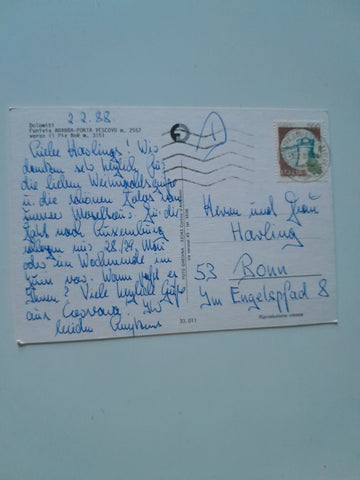 2.2.88
Dolomiti
Funivia ARABBA-PORTA VESCOVO m. 2557
verso il Piz Boè m. 3151
Liebe Harlings! Wir
danken sehr herzlich für
die lieben Weihnachtsgrüße
u. die schönen Fotos
unserer Moselreise. Für die
Fahrt nach Luxemburg
schlagen wir 28./29. Mai
oder ein Wochenende im
Juni vor. Wann paßt es
Ihnen? Viele herzliche Grüße
aus Corvara! Ihre
beiden
Herrn und Frau
Harling
53 Bonn
Im Engelspfad 8
33.011
Riproduzione vietata